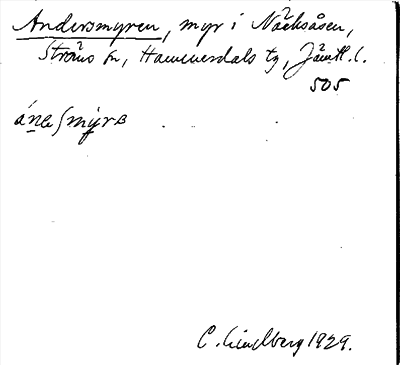 Andersmyren, myr i Näcksåsen,
Ströms sn, Hammerdals tg, Jämtl. l.
505
áneſmyrɞ
C. Lindberg 1929.